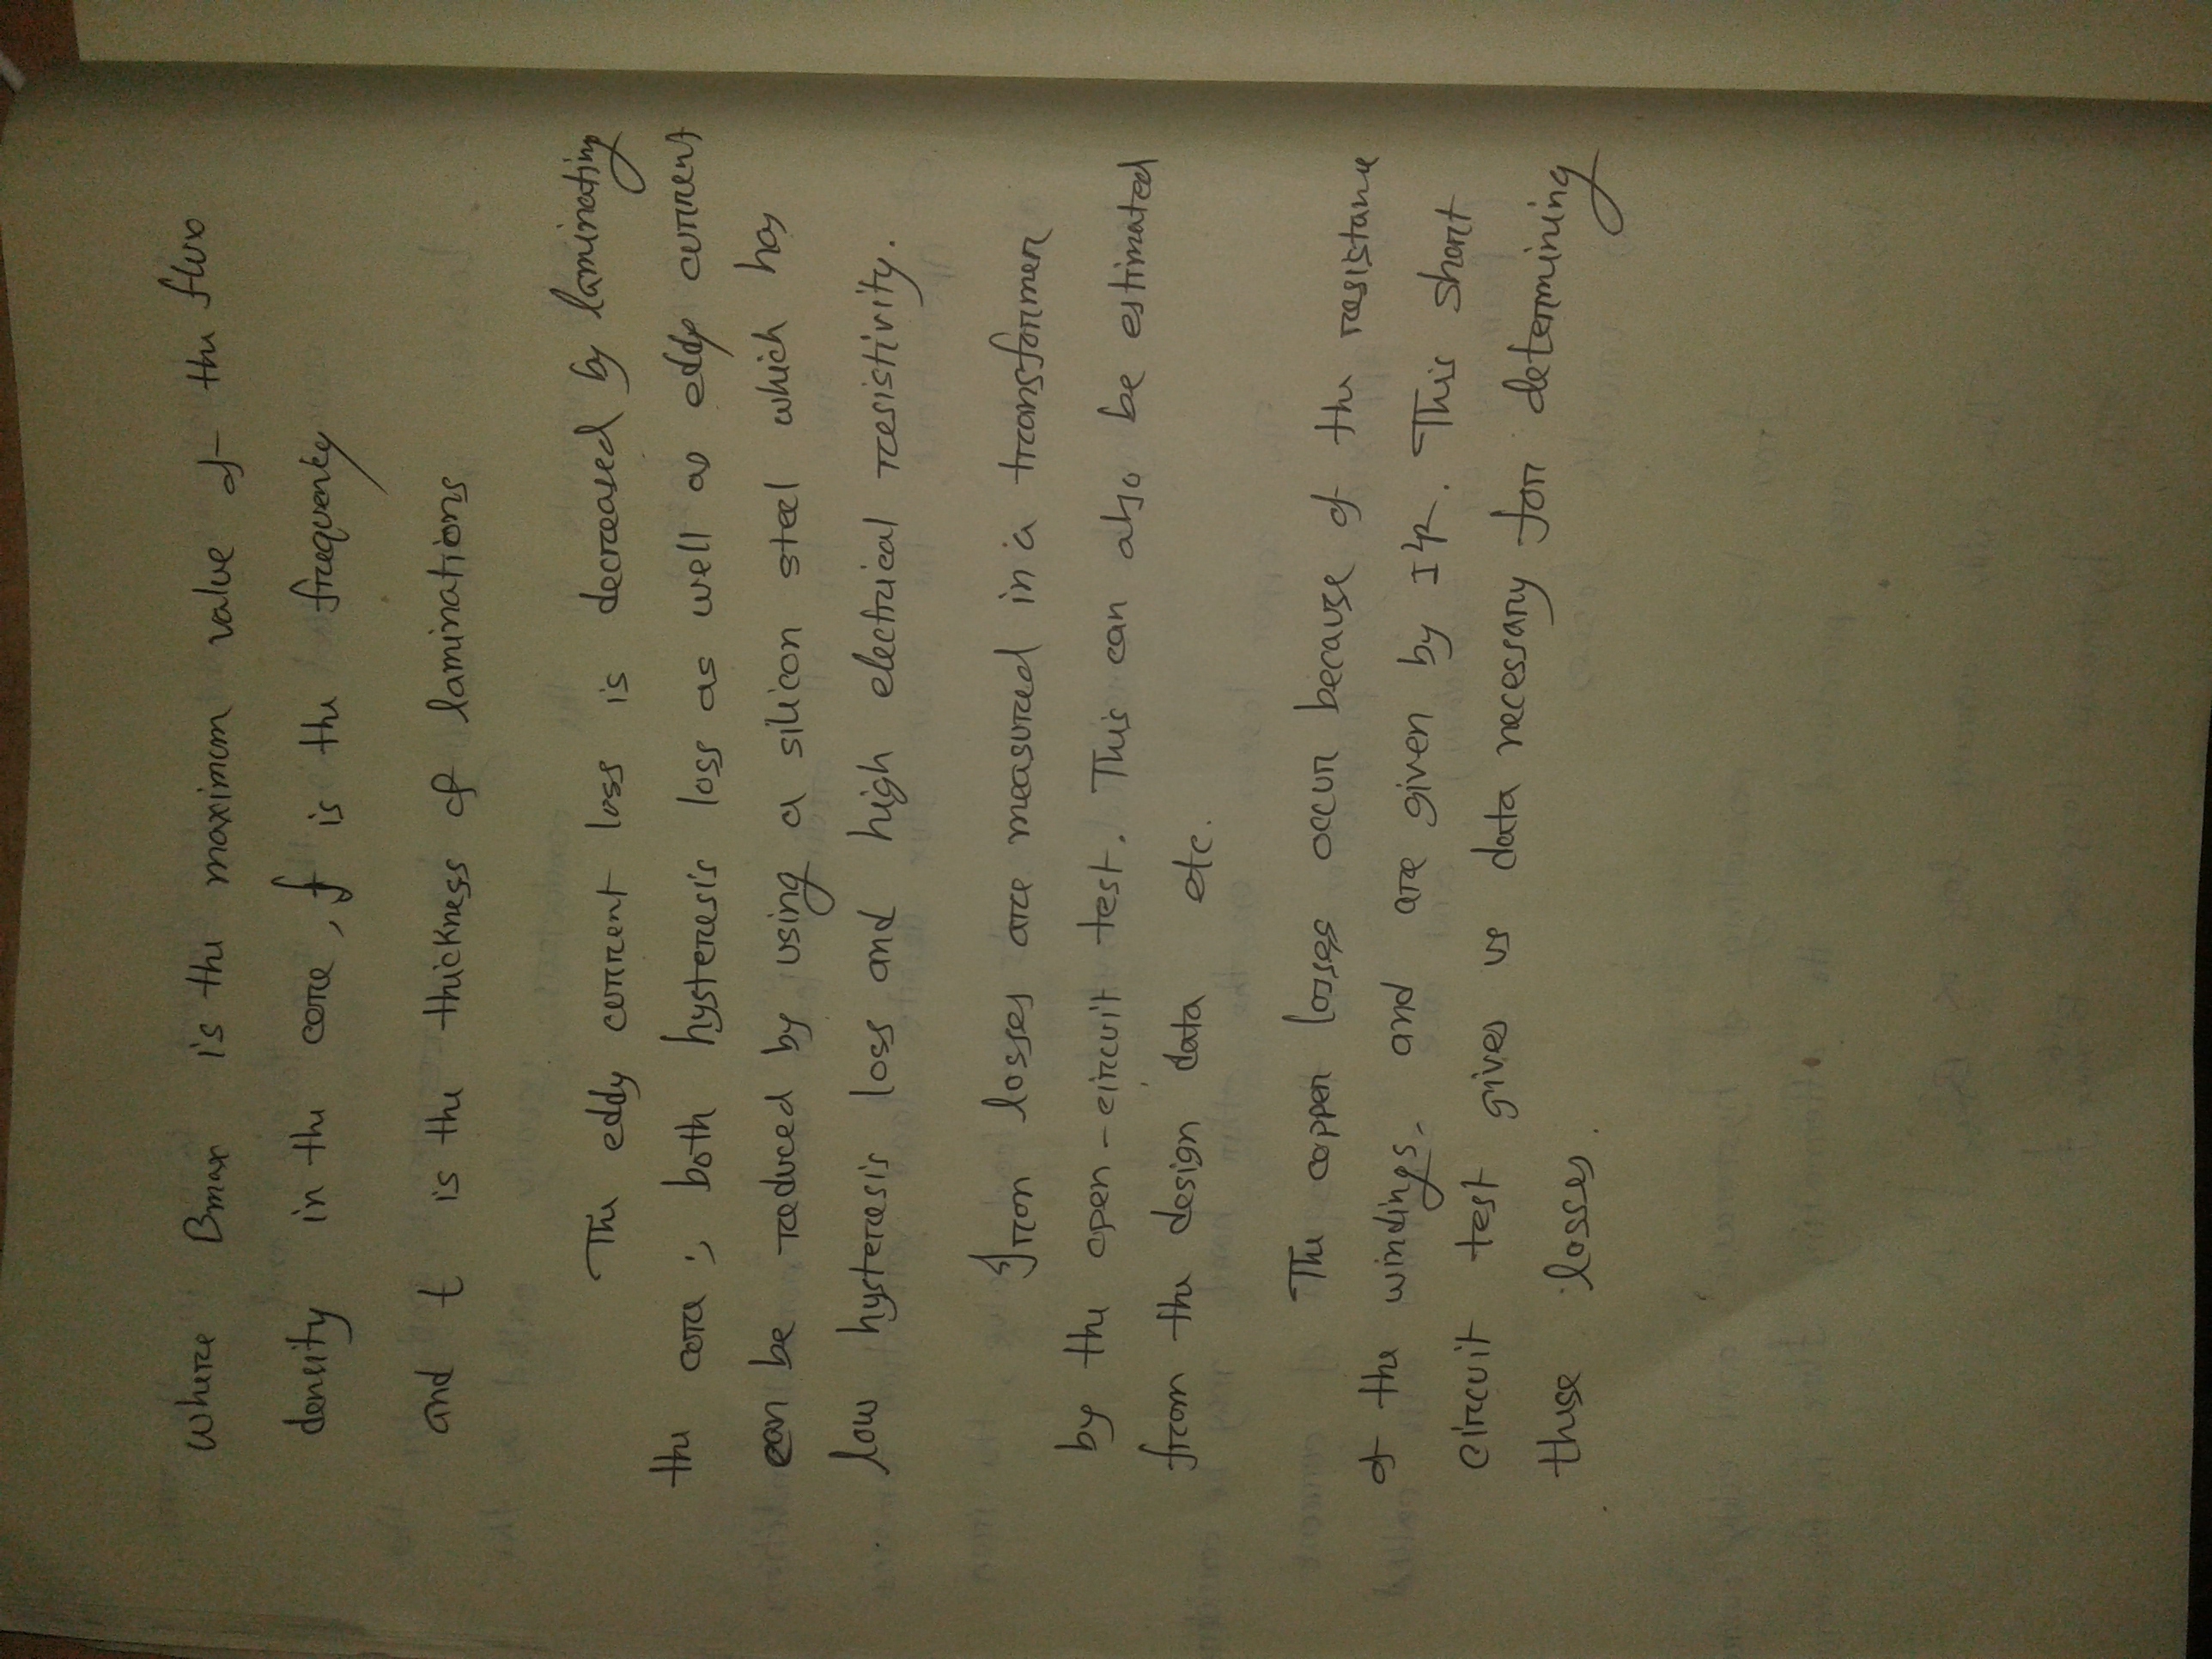 where Bmax is the maximum value of the flux
density in the core, f is the frequency
and t is the thickness of laminations
The eddy current loss is decreased by laminating
the core; both hysteresis loss as well as eddy current
can be reduced by using a silicon steel which has
low hysteresis loss and high electrical resistivity.
Iron losses are measured in a transformer
by the open-circuit test. This can also be estimated
from the design data etc.
The copper losses occur because of the resistance
of the windings, and are given by I²R. This short
circuit test gives us data necessary for determining
these losses.